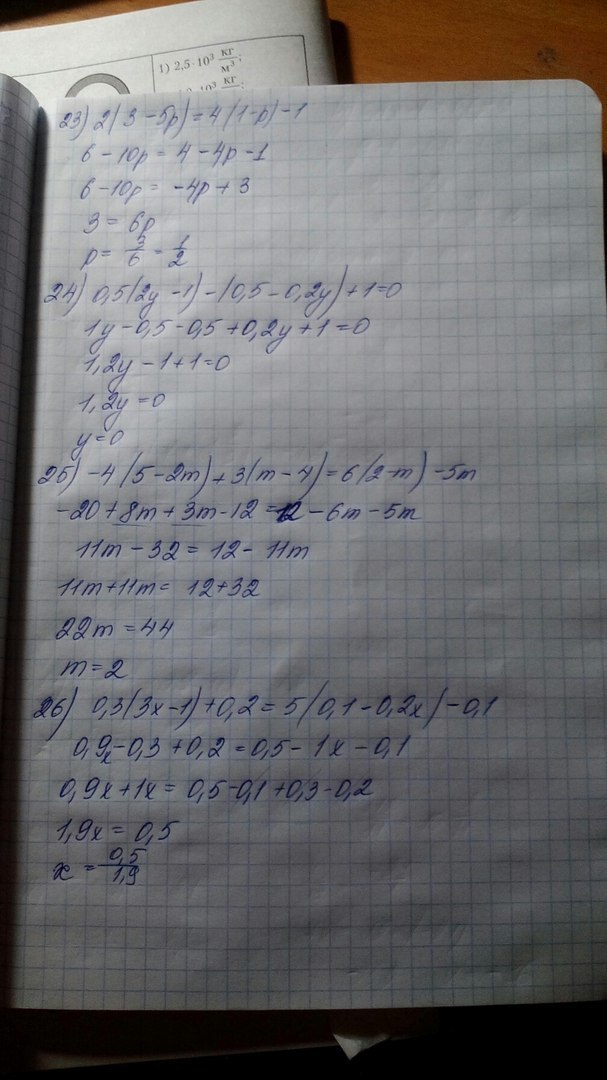 1) 2,5·10³ кг/м³;
·10³ кг
23) 2(3-5p)=4(1-p)-1
6-10p=4-4p-1
6-10p=-4p+3
3=6p
p=3/6=1/2
24) 0,5(2y-1)-(0,5-0,2y)+1=0
1y-0,5-0,5+0,2y+1=0
1,2y-1+1=0
1,2y=0
y=0
25) -4(5-2m)+3(m-4)=6(2-m)-5m
-20+8m+3m-12=12-6m-5m
11m-32=12-11m
11m+11m=12+32
22m=44
m=2
26) 0,3(3x-1)+0,2=5(0,1-0,2x)-0,1
0,9x-0,3+0,2=0,5-1x-0,1
0,9x+1x=0,5-0,1+0,3-0,2
1,9x=0,5
x=0,5/1,9